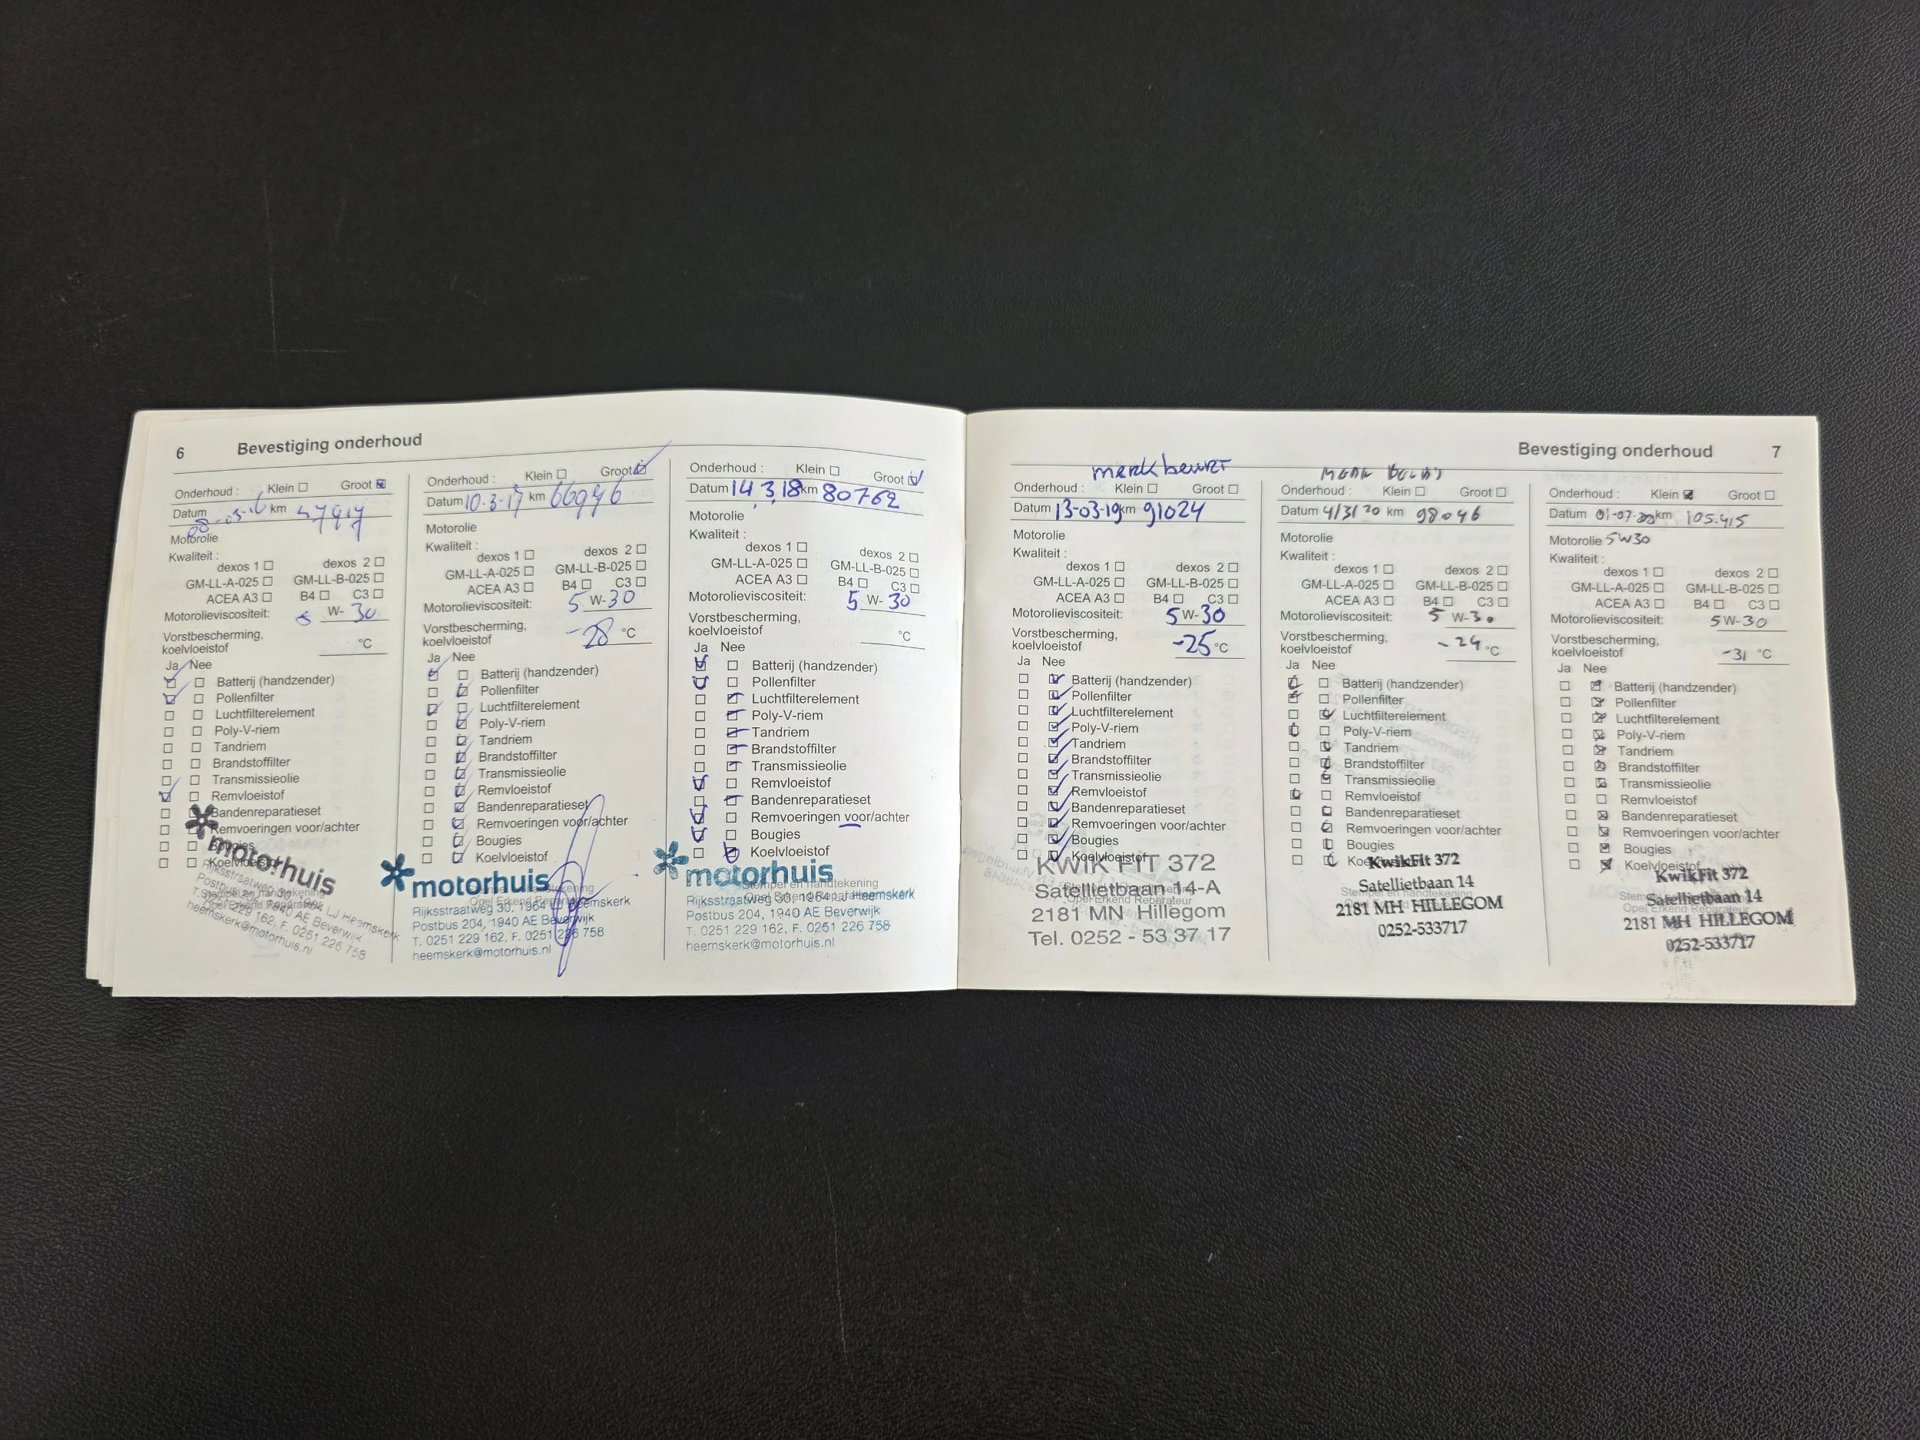 6 Bevestiging onderhoud
Onderhoud : Klein Groot
Datum 08-03-16 km 47917
Motorolie
Kwaliteit :
dexos 1 dexos 2
GM-LL-A-025 GM-LL-B-025
ACEA A3 B4 C3
Motorolieviscositeit: 5 W- 30
Vorstbescherming,
koelvloeistof °C
Ja Nee
Batterij (handzender)
Pollenfilter
Luchtfilterelement
Poly-V-riem
Tandriem
Brandstoffilter
Transmissieolie
Remvloeistof
Bandenreparatieset
Remvoeringen voor/achter
Bougies
Koelvloeistof
motorhuis
Rijksstraatweg 30, 1964 LJ Heemskerk
Postbus 204, 1940 AE Beverwijk
T. 0251 229 162, F. 0251 226 758
heemskerk@motorhuis.nl
Onderhoud : Klein Groot
Datum 10-3-17 km 66946
Motorolie
Kwaliteit :
dexos 1 dexos 2
GM-LL-A-025 GM-LL-B-025
ACEA A3 B4 C3
Motorolieviscositeit: 5 W-30
Vorstbescherming,
koelvloeistof -28 °C
Ja Nee
Batterij (handzender)
Pollenfilter
Luchtfilterelement
Poly-V-riem
Tandriem
Brandstoffilter
Transmissieolie
Remvloeistof
Bandenreparatieset
Remvoeringen voor/achter
Bougies
Koelvloeistof
motorhuis
Rijksstraatweg 30, 1964 LJ Heemskerk
Postbus 204, 1940 AE Beverwijk
T. 0251 229 162, F. 0251 226 758
heemskerk@motorhuis.nl
Onderhoud : Klein Groot
Datum 14,3,18 km 80762
Motorolie
Kwaliteit :
dexos 1 dexos 2
GM-LL-A-025 GM-LL-B-025
ACEA A3 B4 C3
Motorolieviscositeit: 5 W- 30
Vorstbescherming,
koelvloeistof °C
Ja Nee
Batterij (handzender)
Pollenfilter
Luchtfilterelement
Poly-V-riem
Tandriem
Brandstoffilter
Transmissieolie
Remvloeistof
Bandenreparatieset
Remvoeringen voor/achter
Bougies
Koelvloeistof
motorhuis
Stempel en handtekening
Rijksstraatweg 30, 1964 LJ Heemskerk
Postbus 204, 1940 AE Beverwijk
T. 0251 229 162, F. 0251 226 758
heemskerk@motorhuis.nl
Bevestiging onderhoud 7
merkbeurt
Onderhoud : Klein Groot
Datum 13-03-19 km 91024
Motorolie
Kwaliteit :
dexos 1 dexos 2
GM-LL-A-025 GM-LL-B-025
ACEA A3 B4 C3
Motorolieviscositeit: 5 W-30
Vorstbescherming,
koelvloeistof -25 °C
Ja Nee
Batterij (handzender)
Pollenfilter
Luchtfilterelement
Poly-V-riem
Tandriem
Brandstoffilter
Transmissieolie
Remvloeistof
Bandenreparatieset
Remvoeringen voor/achter
Bougies
Koelvloeistof
KWIK FIT 372
Satellietbaan 14-A
2181 MN Hillegom
Tel. 0252 - 53 37 17
Merk beurt
Onderhoud : Klein Groot
Datum 4/3/20 km 98.046
Motorolie
Kwaliteit :
dexos 1 dexos 2
GM-LL-A-025 GM-LL-B-025
ACEA A3 B4 C3
Motorolieviscositeit: 5 W-30
Vorstbescherming,
koelvloeistof -29 °C
Ja Nee
Batterij (handzender)
Pollenfilter
Luchtfilterelement
Poly-V-riem
Tandriem
Brandstoffilter
Transmissieolie
Remvloeistof
Bandenreparatieset
Remvoeringen voor/achter
Bougies
Koelvloeistof
KwikFit 372
Stempel en handtekening
Satellietbaan 14
2181 MH HILLEGOM
0252-533717
Onderhoud : Klein Groot
Datum 01-07-20 km 105.415
Motorolie 5W30
Kwaliteit :
dexos 1 dexos 2
GM-LL-A-025 GM-LL-B-025
ACEA A3 B4 C3
Motorolieviscositeit: 5 W-30
Vorstbescherming,
koelvloeistof -31 °C
Ja Nee
Batterij (handzender)
Pollenfilter
Luchtfilterelement
Poly-V-riem
Tandriem
Brandstoffilter
Transmissieolie
Remvloeistof
Bandenreparatieset
Remvoeringen voor/achter
Bougies
Koelvloeistof
KwikFit 372
Satellietbaan 14
2181 MH HILLEGOM
0252-533717